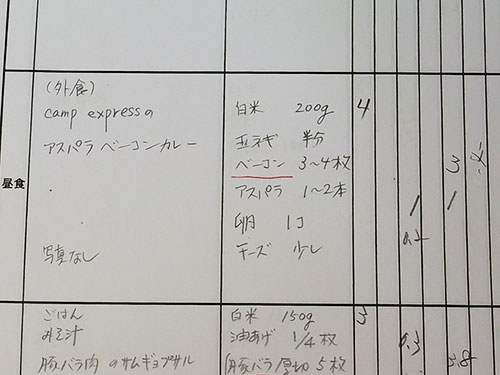 (外食)
camp expressの 白米 200g 4
アスパラベーコンカレー 玉ネギ 半分
ベーコン 3~4枚 3
昼食
アスパラ 1~2本 1 1
卵 1コ
写真なし チーズ 少し
ごはん 白米 150g 3
みそ汁 油あげ 1/4枚 0.3
豚バラ肉のサムギョプサル 豚バラ厚切 5枚 3.8